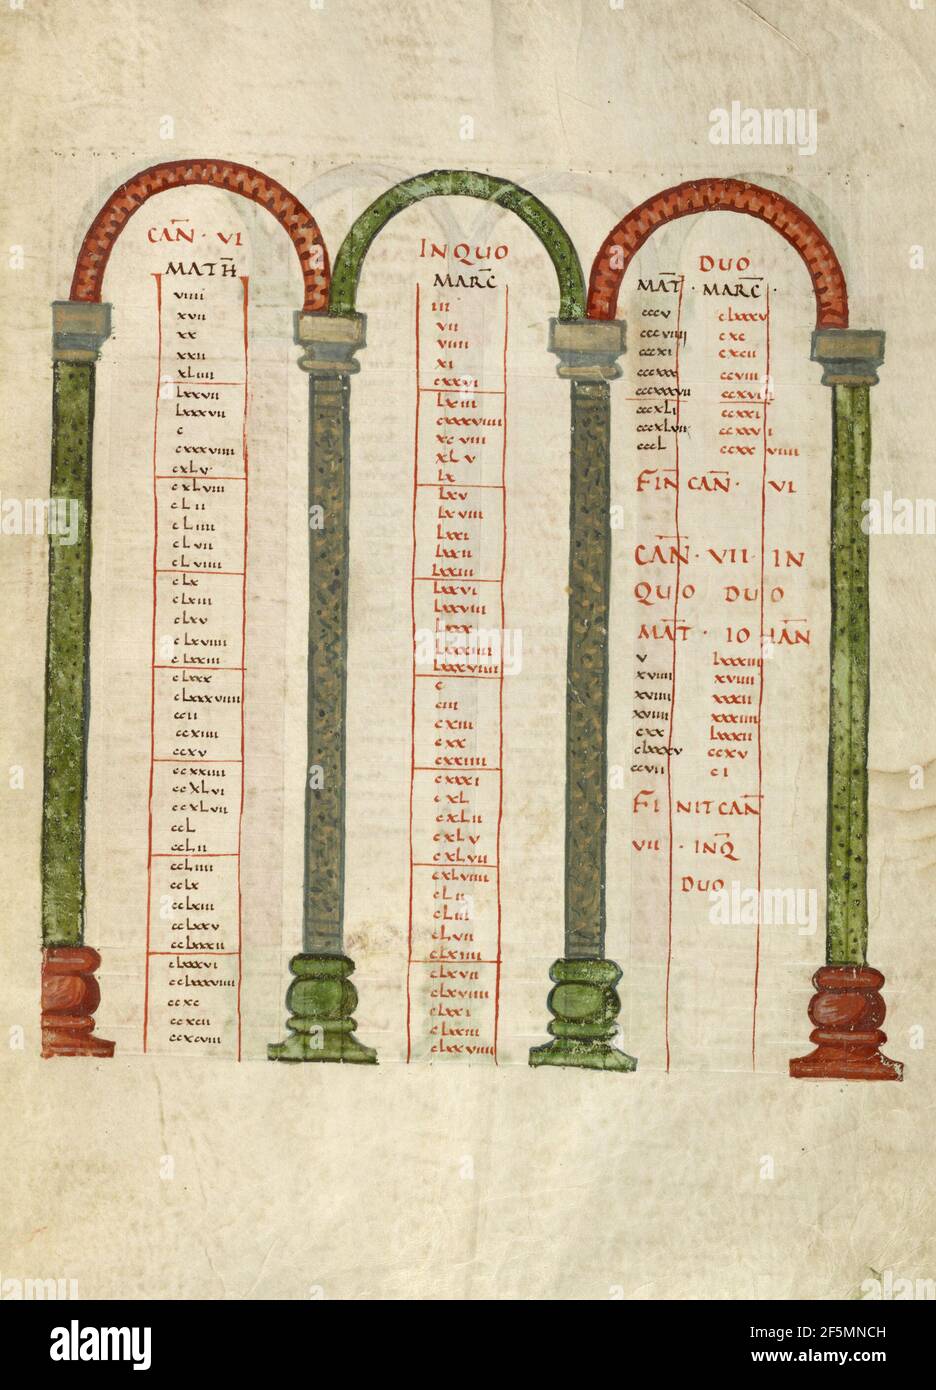 CAN̄ · VI
MATH̄
viiii
xvii
xx
xxii
xLiiii
Lxxvii
Lxxxvii
c
cxxxviiii
cxLv
cxLviii
cLii
cLiiii
cLvii
cLviiii
cLx
cLxiii
cLxv
cLxviiii
cLxxiii
cLxxx
cLxxxviiii
ccii
ccxiiii
ccxv
ccxxiiii
ccxLvi
ccxLvii
ccL
ccLii
ccLiiii
ccLx
ccLxiii
ccLxxv
ccLxxxii
cLxxxvi
ccLxxxviiii
ccxc
ccxcii
ccxcviii
IN QUO
MARC̄
iii
vii
viiii
xi
cxxvi
Lxiii
cxxxxviiii
xcviii
xLv
Lx
Lxv
Lxviii
Lxxi
Lxxii
Lxxiii
Lxxvi
Lxxviii
Lxxx
Lxxxiiii
Lxxxviiii
c
ciii
cxiii
cxx
cxxiiii
cxxxi
cxL
cxLii
cxLv
cxLvii
cxLviiii
cLii
cLiii
cLvii
cLxiiii
cLxvii
cLxviiii
cLxxi
cLxxiii
cLxxviiii
DUO
MAT̄ · MARC̄ ·
cccv cLxxxv
cccviiii cxc
cccxi cxcii
cccxxx ccviii
cccxxxvii ccxvii
cccxLi ccxxi
cccxLvii ccxxvi
cccL ccxxviiii
FIN̄ CAN̄ · VI
CAN̄ · VII · IN
QUO DUO
MAT̄ · IOHAN̄
v Lxxxiii
xviiii xviiii
xviiii xxxii
xviiii xxxiiii
cxx Lxxxii
cLxxxv ccxv
ccvii ci
FINIT CAN̄
VII · INQ̄
DUO
alamy
Image ID: 2F5MNCH
www.alamy.com